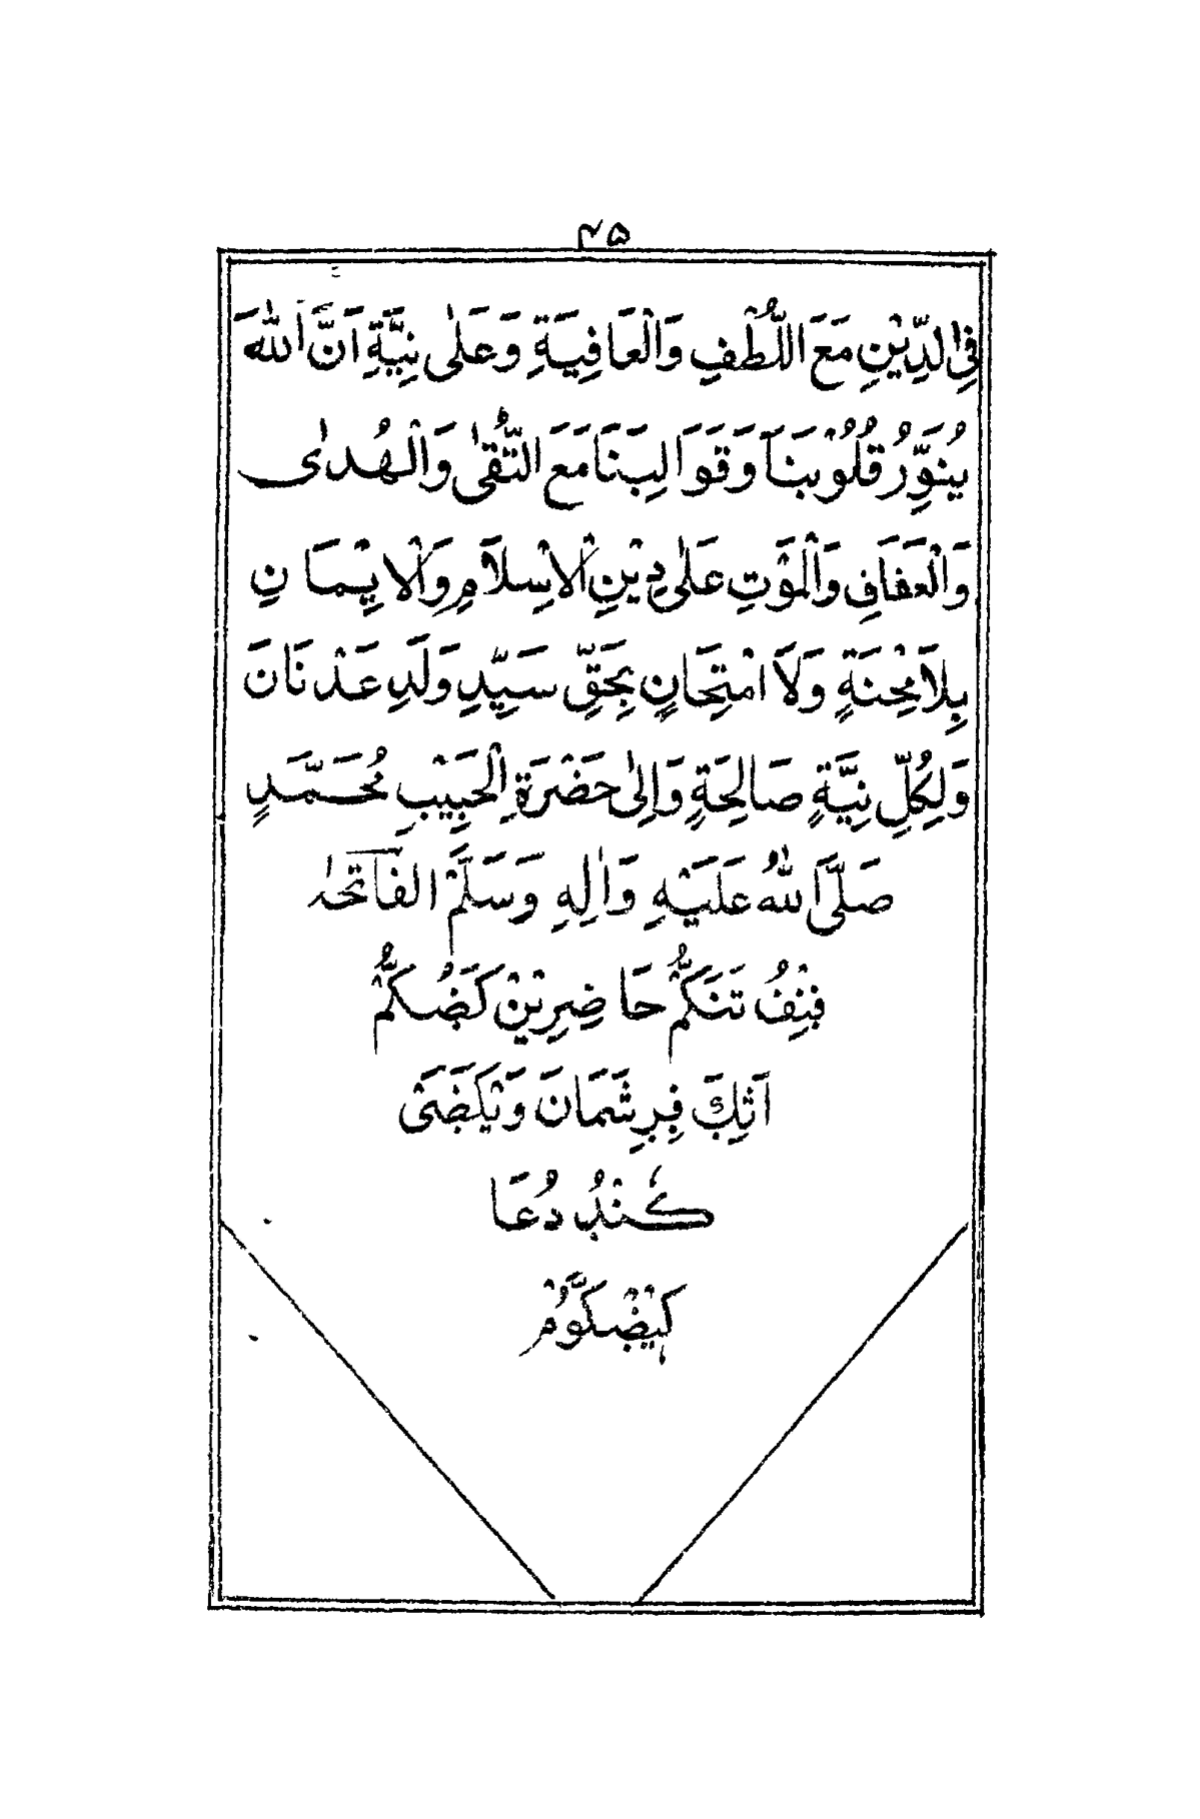 ۴۵
فِي الدِّيْنِ مَعَ اللُّطْفِ وَالْعَافِيَةِ وَعَلٰى نِيَّةِ اَنَّ اَللّٰهَ
يُنَوِّرُ قُلُوْبَنَا وَقَوَالِبَنَا مَعَ التُّقٰى وَالْهُدٰى
وَالْعَفَافِ وَالْمَوْتِ عَلٰى دِيْنِ الْاِسْلَامِ وَالْاِيْمَانِ
بِلَا مِحْنَةٍ وَلَا امْتِحَانٍ بِحَقِّ سَيِّدِ وَلَدِ عَدْنَانَ
وَلِكُلِّ نِيَّةٍ صَالِحَةٍ وَاِلٰى حَضْرَةِ الْحَبِيْبِ مُحَمَّدٍ
صَلَّى اَللّٰهُ عَلَيْهِ وَاٰلِهِ وَسَلَّمْ الفَاتحه
حَاضِرِيْنْ
كُنْدُ دُعَا